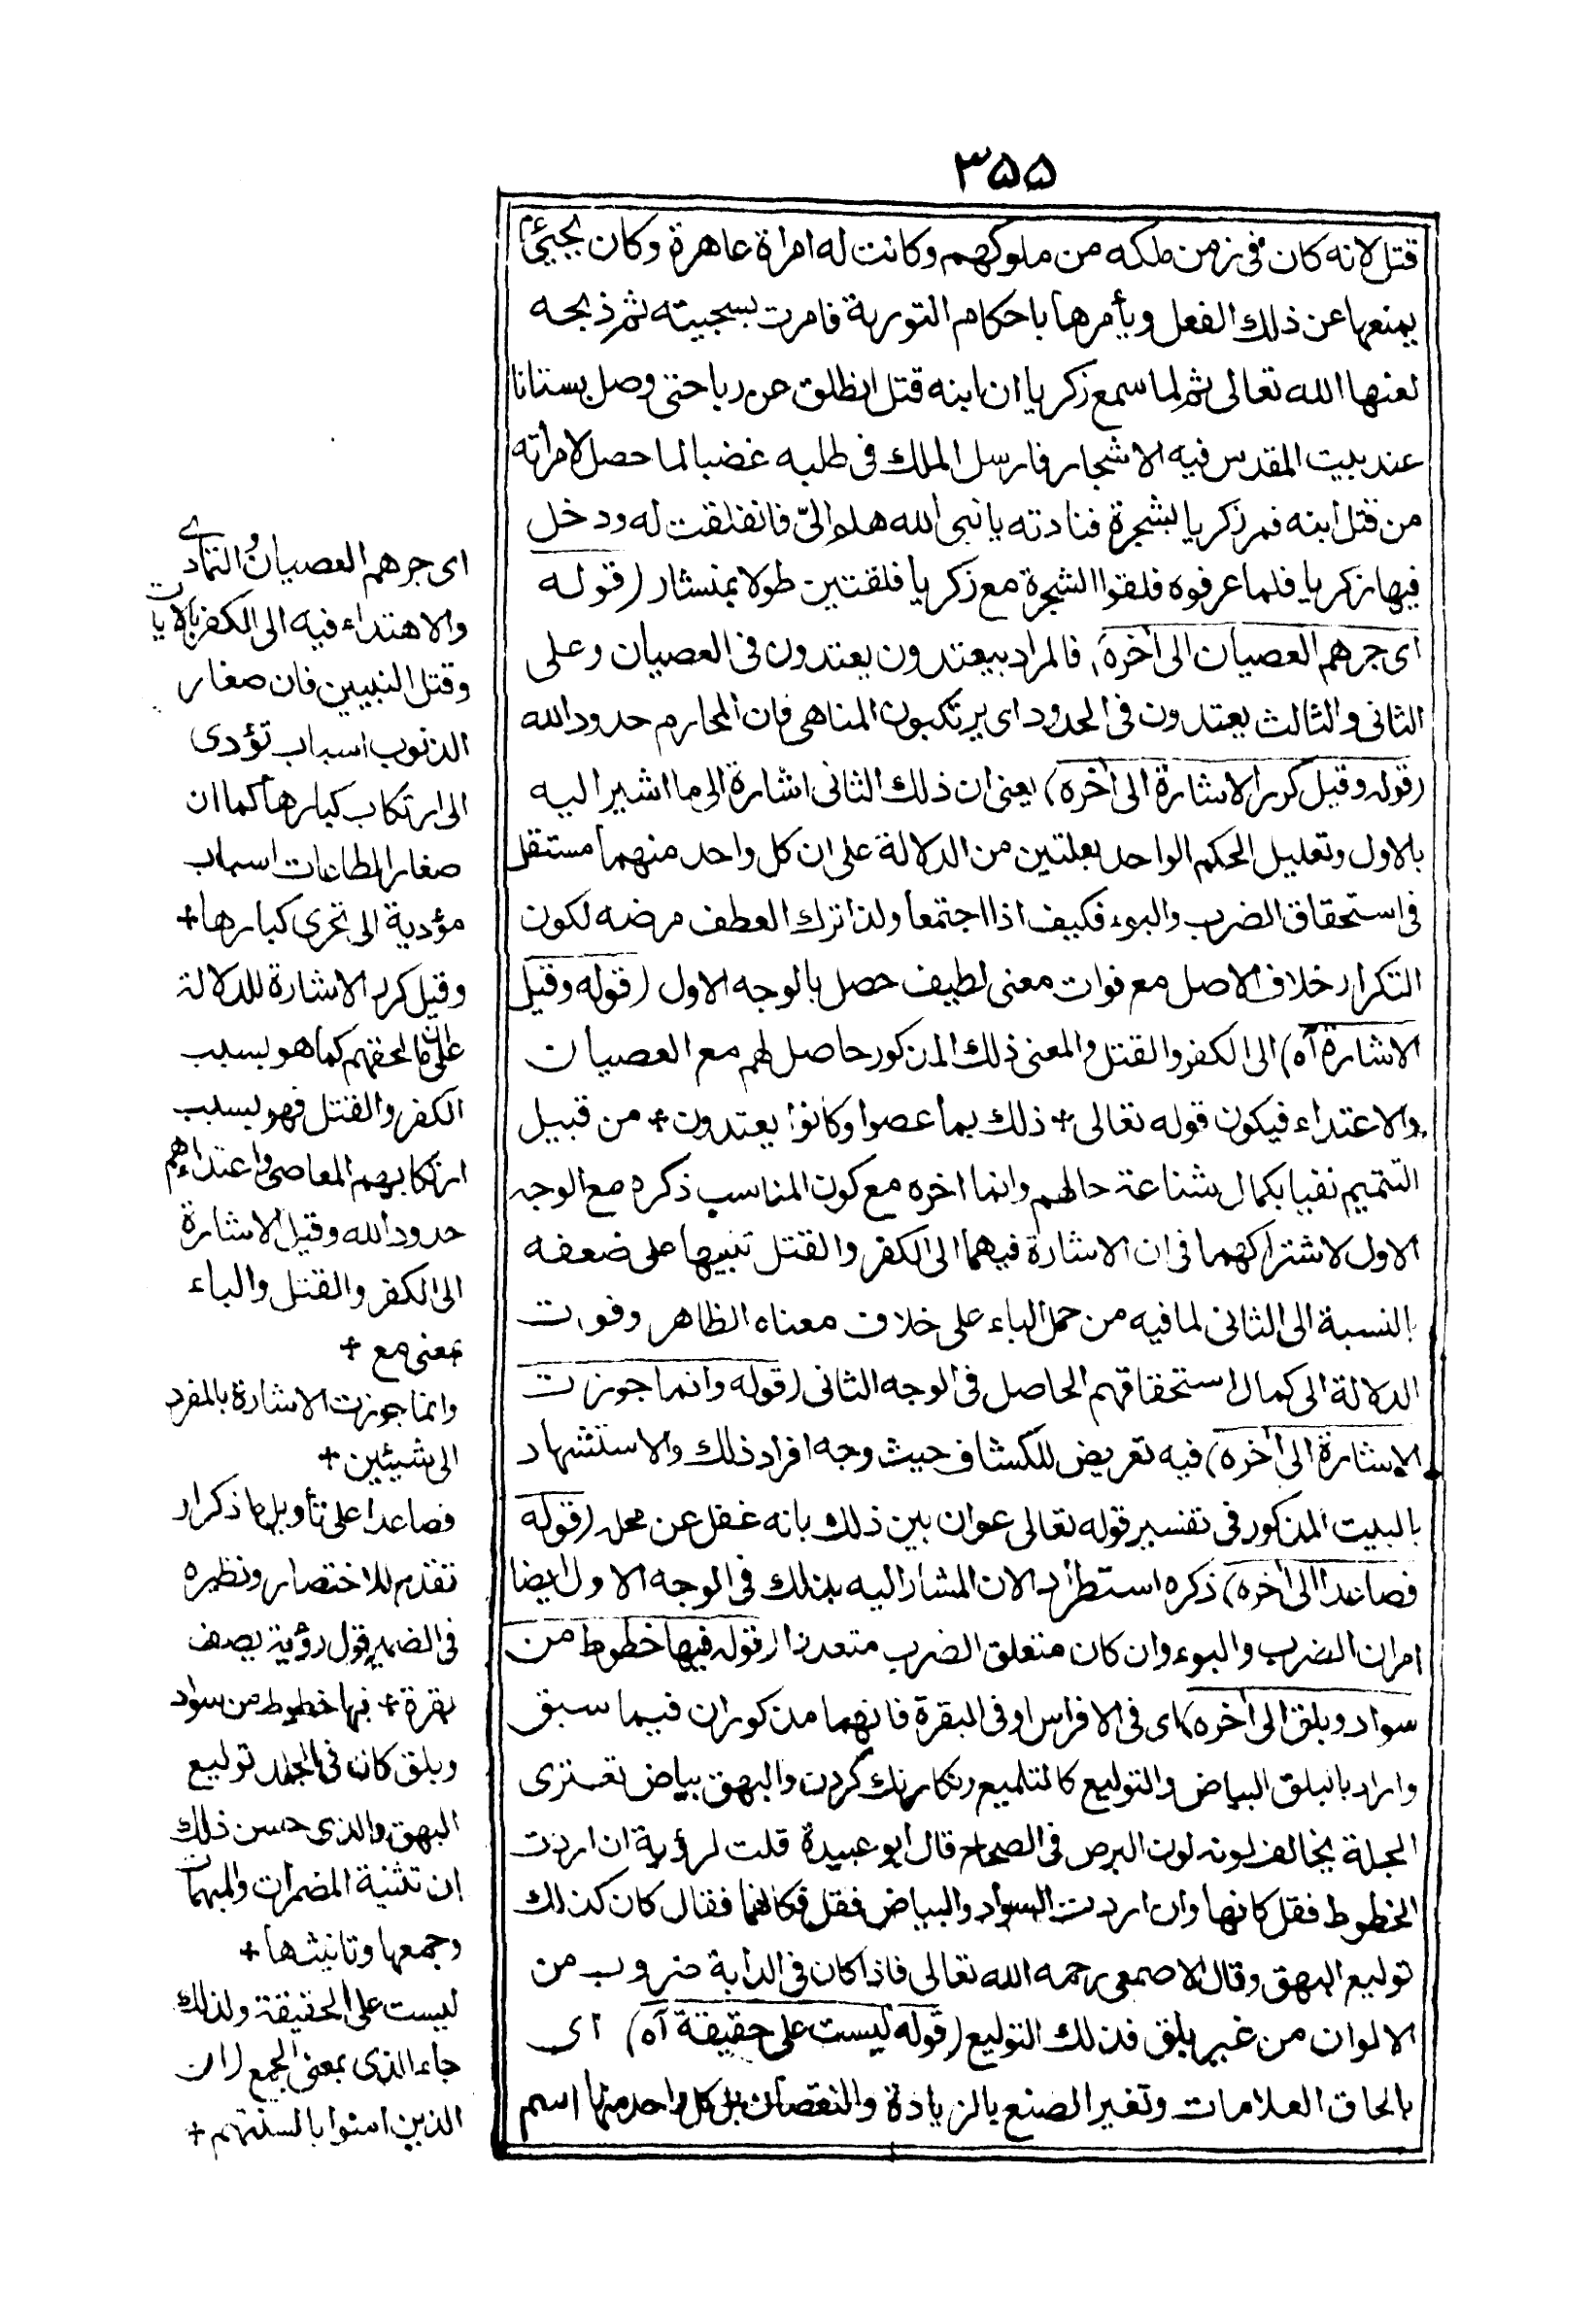 ۳۵۵
قتل لانه كان فى زمن ملكه من ملوكهم وكانت له امراة عاهرة وكان يحيى
يمنعها عن ذلك الفعل ويأمرها باحكام التورية فامرت بسجيته ثم ذبحه
لعنها الله تعالى ثم لما سمع زكريا ان ابنه قتل انطلق حتى وصل بستانا
عند بيت المقدس فيه الاشجار فارسل الملك فى طلبه غضبا لما حصل لامرأته
من قتل ابنه فمر زكريا بشجرة فنادته يا نبى الله هلم الىّ فانفلقت له ودخل
فيها زكريا فلما عرفوه فلقوا الشجرة مع زكريا فلقتين طولا بمنشار (قوله
اى جرهم العصيان الى أخره) فالمراد بيعتدون يعتدون فى العصيان وعلى
الثانى والثالث يعتدون فى الحدود اى يرتكبون المناهى فان المحارم حدود الله
(قوله وقيل كرر الاشارة الى أخره) يعنى ان ذلك الثانى اشارة الى ما اشير اليه
بالاول وتعليل الحكم الواحد بعلتين من الدلالة على ان كل واحد منهما مستقل
فى استحقاق الضرب والبوء فكيف اذا اجتمعا ولذا ترك العطف مرضه لكون
التكرار خلاف الاصل مع فوات معنى لطيف حصل بالوجه الاول (قوله وقيل
الاشارة آه) الى الكفر والقتل والمعنى ذلك المذكور حاصل لهم مع العصيان
والاعتداء فيكون قوله تعالى + ذلك بما عصوا وكانوا يعتدون + من قبيل
التتميم نفيا بكمال شناعة حالهم وانما اخره مع كون المناسب ذكره مع الوجه
الاول لاشتراكهما فى ان الاشارة فيهما الى الكفر والقتل تنبيها على ضعفه
بالنسبة الى الثانى لما فيه من حمل الباء على خلاف معناه الظاهر وفوات
الدلالة الى كمال استحقاقهم الحاصل فى الوجه الثانى (قوله وانما جوزت
الاشارة الى أخره) فيه تعريض للكشاف حيث وجه افراد ذلك والاستشهاد
بالبيت المذكور فى تفسير قوله تعالى عوان بين ذلك بانه غفل عن محله (قوله
فصاعدا الى أخره) ذكره استطرادا لان المشار اليه بذلك فى الوجه الاول ايضا
امران الضرب والبوء وان كان متعلق الضرب متعددا (قوله فيها خطوط من
سواد وبلق الى أخره) اى فى الافراس او فى البقرة فانهما مذكوران فيما سبق
واراد بالبلق البياض والتوليع كالتلميع رنكارنك كردن والبهق بياض تعترى
الجلة يخالف لونه لون البرص فى الصحاح قال ابو عبيدة قلت لرؤبة ان اردت
الخطوط فقل كانها وان اردت السواد والبياض فقل كانهما فقال كان كذلك
توليع البهق وقال الاصمعى رحمه الله تعالى فاذا كان فى الدابة ضروب من
الالوان من غير بلق فذلك التوليع (قوله ليست على حقيقة آه) اى
بالحاق العلامات وتغير الصنع بالزيادة والنقصان بل كل واحد منها اسم
اى جرهم العصيان والتمادى
والاهتداء فيه الى الكفر بالايات
وقتل النبيين فان صغار
الذنوب اسباب تؤدى
الى ارتكاب كبارها كما ان
صغار الطاعات اسباب
مؤدية الى تحرى كبارها +
وقيل كرر الاشارة للدلالة
على ان ما لحقهم كما هو بسبب
الكفر والقتل فهو بسبب
ارتكابهم المعاصى واعتداءهم
حدود الله وقيل الاشارة
الى الكفر والقتل والباء
بمعنى مع +
وانما جوزت الاشارة بالمفرد
الى شيئين +
فصاعدا على تأويل ما ذكر او
تقدم للاختصار ونظيره
فى الضمير قول رؤبة يصف
بقرة + فيها خطوط من سواد
وبلق كانه فى الجلد توليع
البهق والذى حسن ذلك
ان تثنية المضمرات والمبهمات
وجمعها وتانيثها +
ليست على الحقيقة ولذلك
جاء الذى بمعنى الجمع (ان
الذين امنوا بالسنتهم +